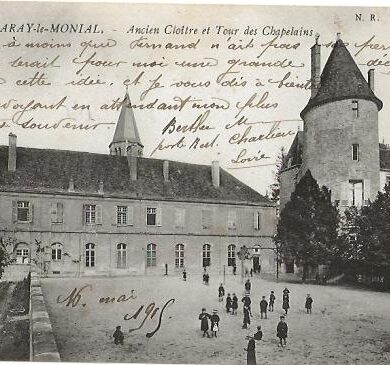 ARAY-le-MONIAL. - Ancien Cloître et Tour des Chapelains
N. R.
à moins que Fernand n'ait pas
serait pour moi une grande dé
cette idée, et je vous dis à bientôt
voyant en attendant mon plus
souvenir.
Berthe M
port Rest. Charlieu
Loire
16 mai 1915